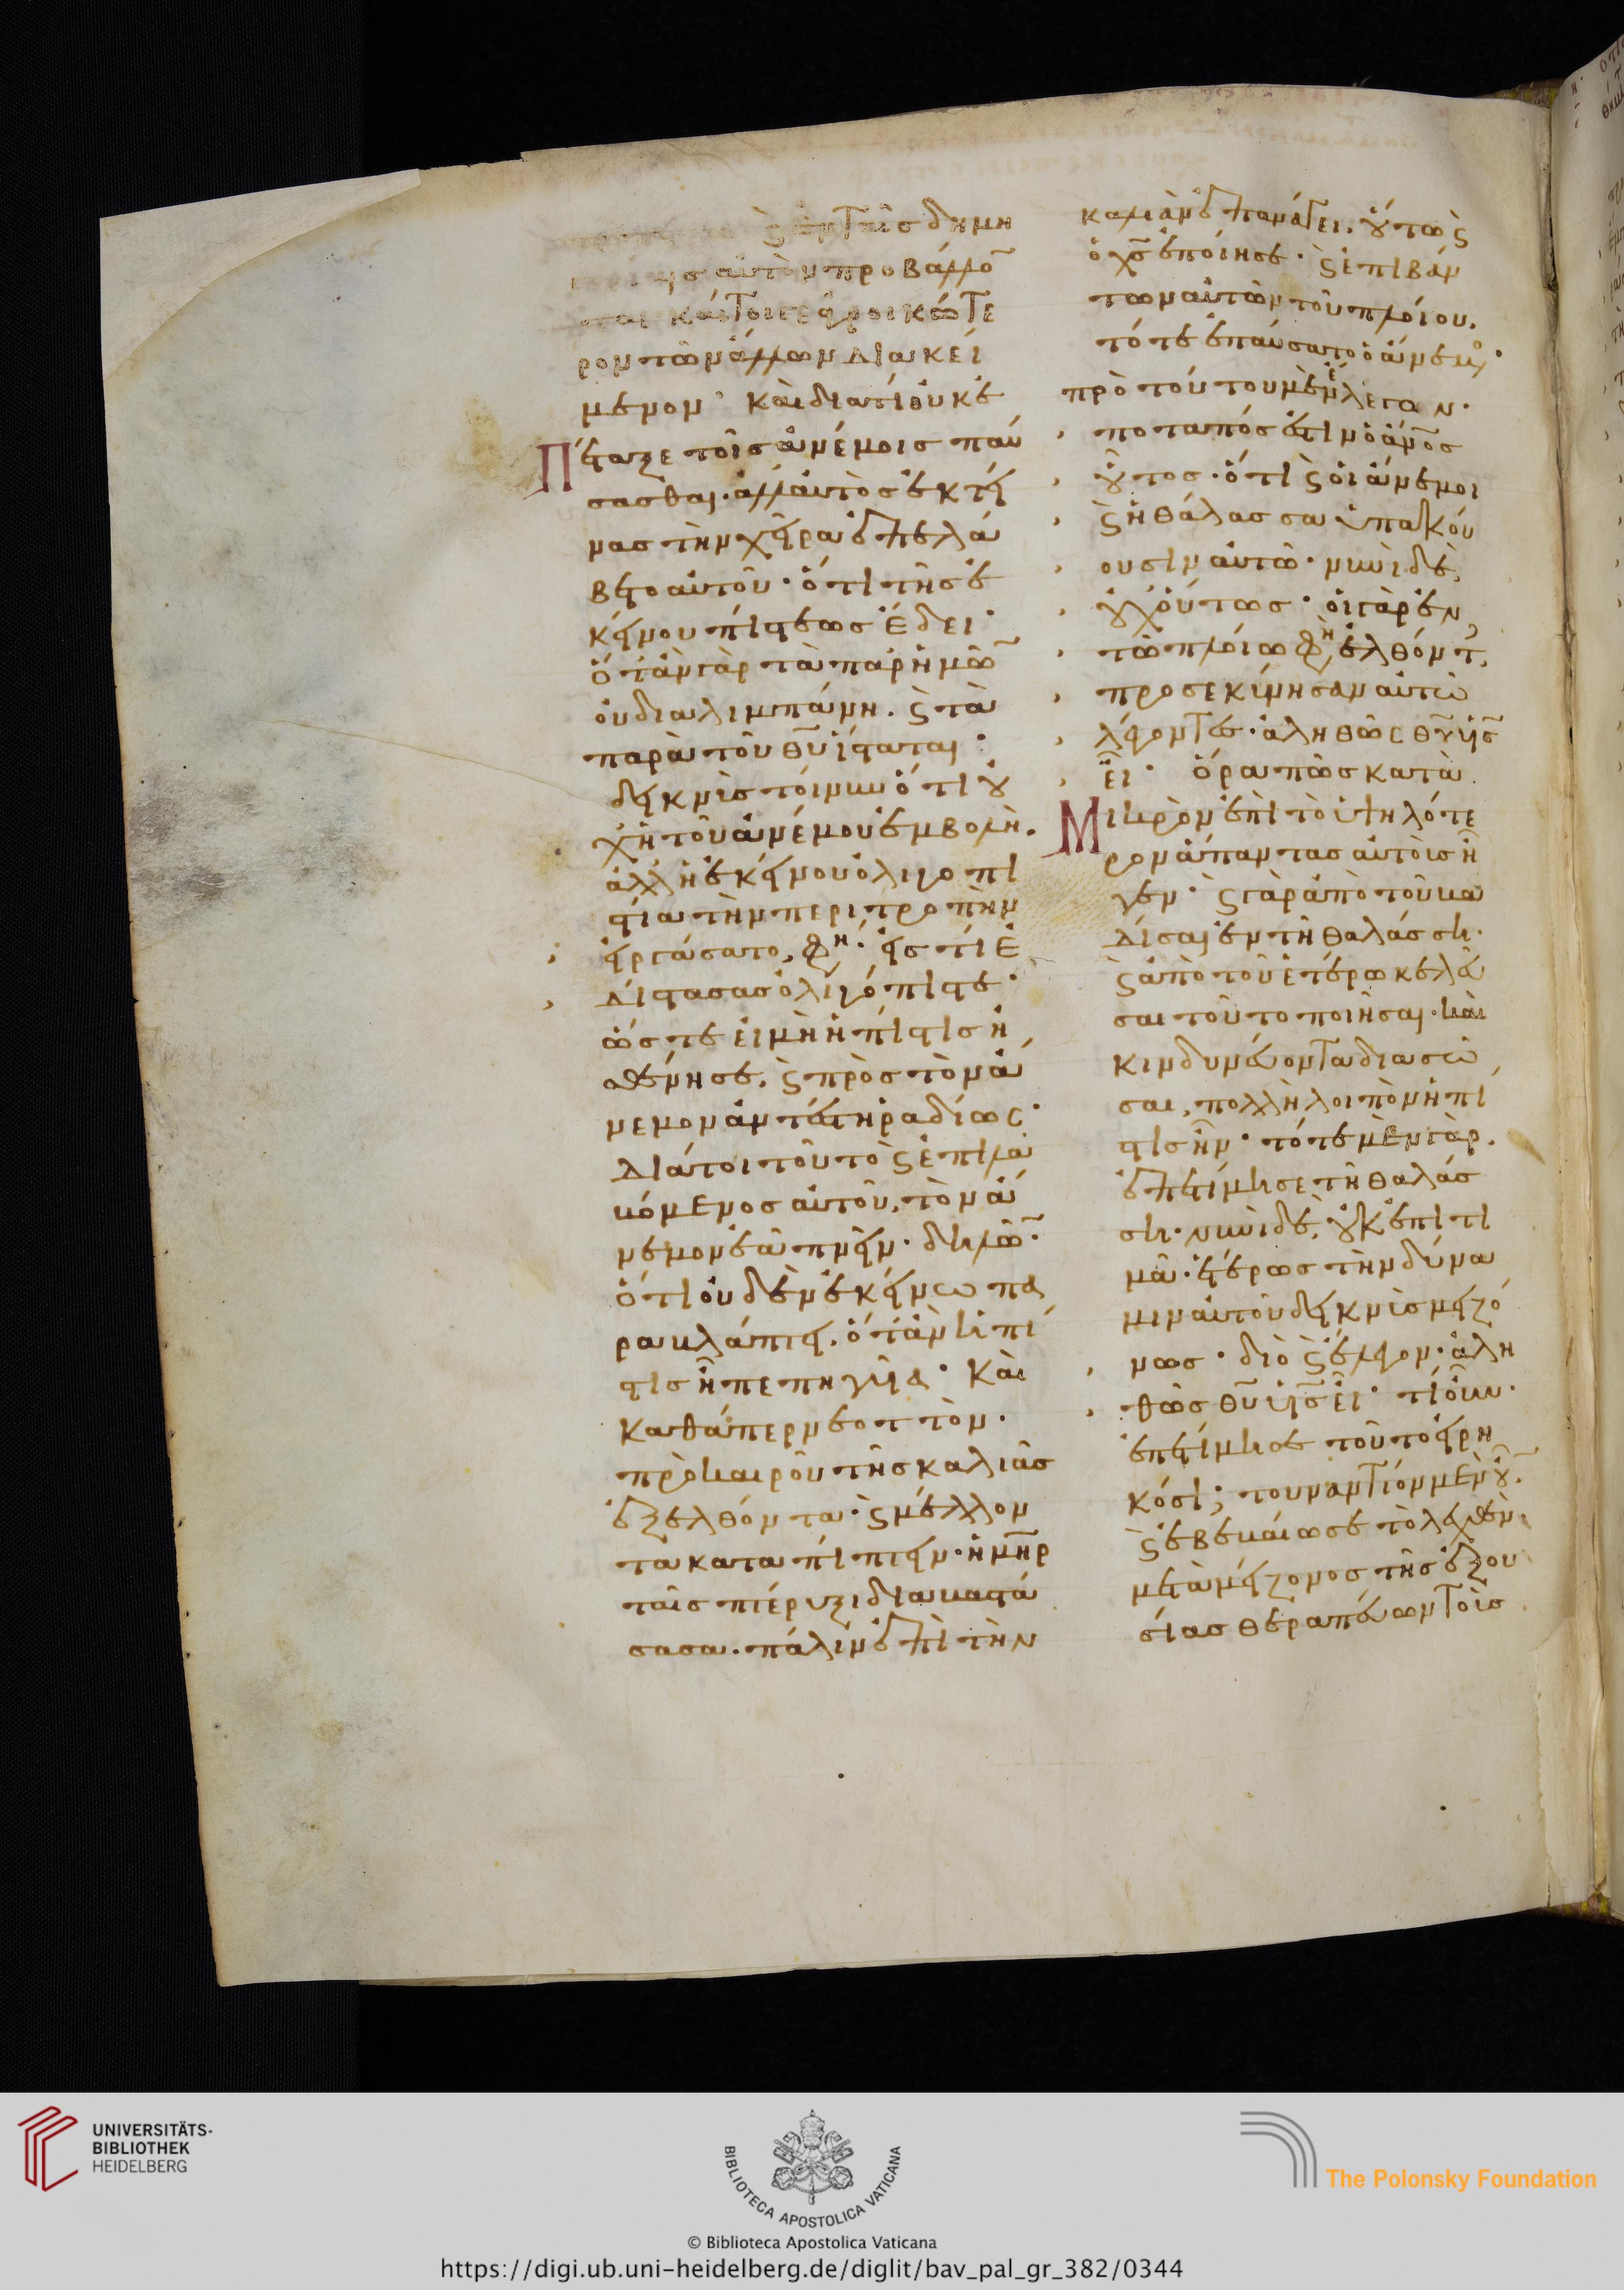 ϛ ἐν ταῖς δημη
αὐτὸν προβάλλο̅
καίτοιγε ἀγροικώτε
ρον τῶν ἄλλων διακεί
μενον· καὶ διατί οὐκ ἐ
Πέταξε τοῖς ἀνέμοις παύ
σασθαι. ἀλλ αὐτὸς ἐκτεί
νας τὴν χεῖρα ἐπελά
βετο αὐτοῦ· ὅτι τῆς ἐ
κείνου πίστεως ἔδει·
ὅταν γὰρ τὰ παρ ἡμῶ̅
οὐ διαλιμπάνη. ϛ τὰ
παρὰ τοῦ θ̅υ̅ ἵσταται:
δεικνὺς τοίνυν ὅτι οὐ
χ ἡ τοῦ ἀνέμου ἐμβολὴ.
ἀλλ ἡ ἐκείνου ὀλιγοπι
στία τὴν περιτροπὴν
εἰργάσατο, φη· εἰς τί ἐ
δίστασας ὀλιγόπιστε·
ὥστε εἰ μὴ ἡ πίστις ἠ
σθένησε, ϛ πρὸς τὸν ἄ
νεμον ἀντέστη ραδίως·
διάτοι τοῦτο ϛ ἐπιλα
βόμενος αὐτοῦ, τὸν ἄ
νεμον ἐᾶ πνεῖν. δηλῶ̅·
ὅτι οὐδὲν ἐκείνω πα
ραβλάπτει. ὅταν ἡ πί
στις ῆ πεπηγυῖα· Καὶ
καθάπερ νεοττὸν.
πρὸ καιροῦ τῆς καλιᾶς
ἐξελθόντα· ϛ μέλλον
τα καταπίπτειν. ἡ μ̅η̅ρ
ταῖς πτέρυξι διαβαστά
σασα. πάλιν ἐπὶ τὴν
καλιὰν ἐπανάγει. οὕτω ϛ
ὁ χ̅ς̅ ἐποίησε· ϛ ἐπιβάν
των αὐτῶν τοῦ πλοίου,
τότε ἐπαύσατο ὁ ἄνεμο·
πρὸ τούτου μὲν ἔλεγον·
ποταπός ἐστιν ὁ α̅ν̅ος
οὗτος· ὅτι ϛ οἱ ἄνεμοι
ϛ ἡ θάλασσα ὑπακού
ουσιν αὐτῶ· νυνὶ δὲ,
οὐχ οὕτως· οἱ γὰρ ἐν
τῶ πλοίω φη, ἐλθόντ
προσεκύνησαν αὐτῶ
λέγοντες· ἀληθῶς θ̅υ̅ υ̅ς̅
εἶ· ὅρα πῶς κατὰ
Μικρὸν ἐπὶ τὸ ὑψηλότε
ρον ἅπαντας αὐτοὺς ἦ
γεν· ϛ γὰρ ἀπὸ τοῦ βα
δίσαι ἐν τῆ θαλάσση.
ϛ ἀπὸ τοῦ ἑτέρω κελεῦ
σαι τοῦτο ποιῆσαι. καὶ
κινδυνεύοντα διασῶ
σαι, πολλὴ λοιπὸν ἡ πί
στις ῆν· τότε μὲν γὰρ.
ἐπετίμησε τῆ θαλάσ
ση. νυνὶ δὲ, οὐκ ἐπιτι
μᾶ. ἑτέρως τὴν δύνα
μιν αὐτοῦ δεικνὺς μειζό
νως· διὸ ϛ ἔλεγον· ἀλη
θῶς θ̅υ̅ υ̅ς̅ εἶ· τί οὖν.
ἐπετίμησε τοῦτο εἰρη
κόσι; τουναντίον μὲν οὖ̅.
ϛ ἐβεβαίωσε τὸ λεχθὲν
μετὰ μείζονος τῆς ἐξου
σίας θεραπεύων τοὺς
UNIVERSITÄTS-
BIBLIOTHEK
HEIDELBERG
BIBLIOTECA APOSTOLICA VATICANA
The Polonsky Foundation
© Biblioteca Apostolica Vaticana
https://digi.ub.uni-heidelberg.de/diglit/bav_pal_gr_382/0344